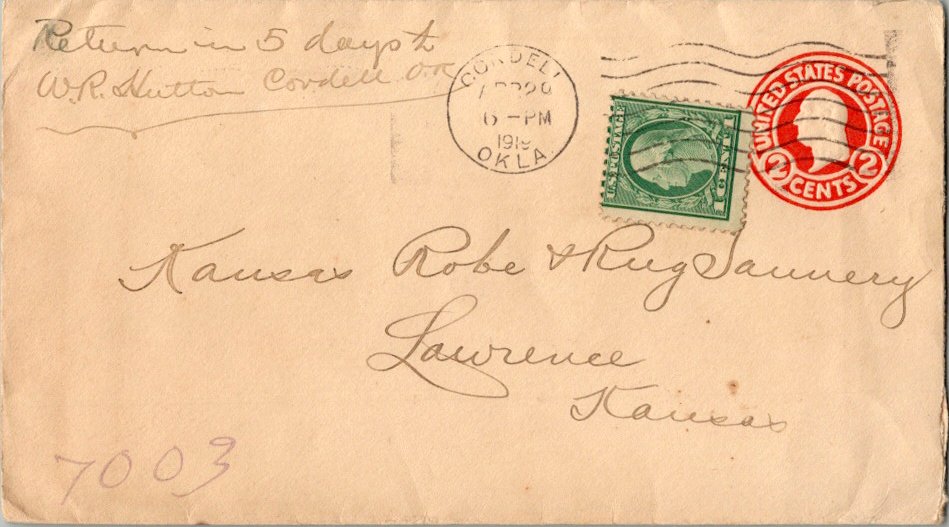 Return in 5 days to
W.R. Hutton Cordell Ok
CORDELL
6 - PM
1919
OKLA.
U.S. POSTAGE
1 CENT 1
UNITED STATES POSTAGE
2 CENTS 2
Kansas Robe & Rug Tannery
Lawrence
Kansas
7003